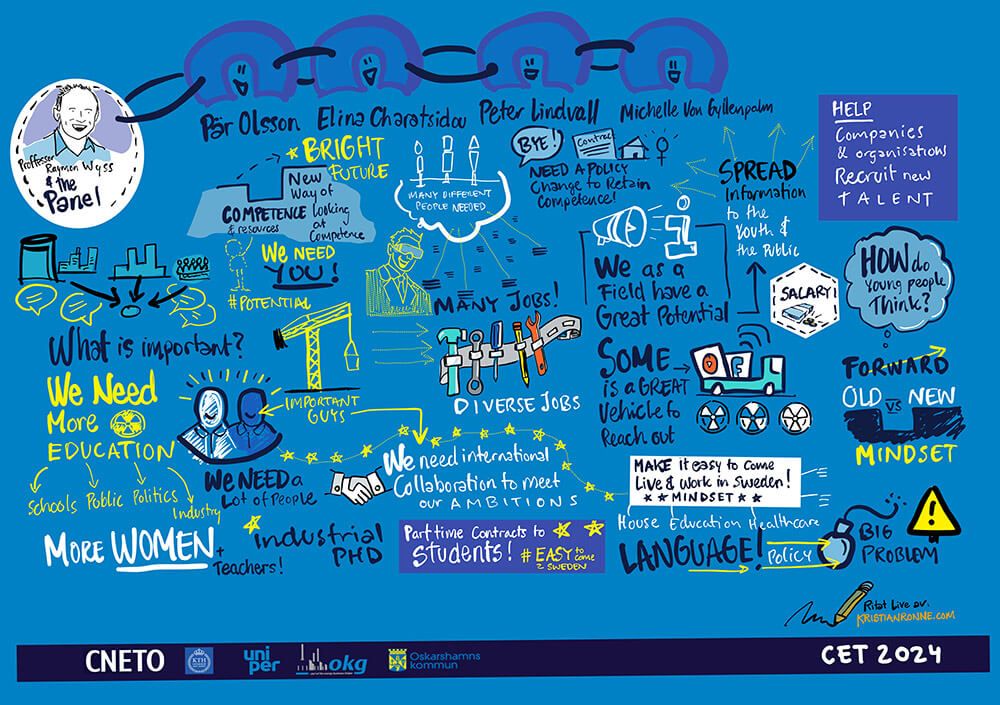 Pär Olsson
Elina Charatsidou
Peter Lindvall
Michelle Von Gyllenpalm
Proffessor
Raymon Wyss
& the
Panel
BRIGHT
FUTURE
New
Way of
looking
at
Competence
COMPETENCE
& resources
MANY DIFFERENT
PEOPLE NEEDED
BYE!
Contract
NEED A POLICY
Change to Retain
Competence!
SPREAD
Information
to the
Youth &
the Public
HELP
Companies
& organisations
Recruit new
TALENT
We NEED
YOU!
#POTENTIAL
MANY JOBS!
We as a
Field have a
Great Potential
SALARY!
HOW do
Young people
Think?
What is important?
We Need
More
EDUCATION
Schools
Public
Politics
Industry
IMPORTANT
GUYS
DIVERSE JOBS
SOME
is a GREAT
Vehicle to
Reach out
FORWARD
OLD vs NEW
MINDSET
We NEED a
Lot of People
We need international
Collaboration to meet
our AMBITIONS
MAKE it easy to come
Live & Work in Sweden!
MINDSET
House Education Healthcare
MORE WOMEN
+ Teachers!
industrial
PHD
Part time Contracts to
Students!
#EASY to come
2 SWEDEN
LANGUAGE!
Policy
BIG
PROBLEM
!
Ritat Live av:
KRISTIANRONNE.COM
CNETO
KTH
uni
per
okg
Oskarshamns
kommun
CET 2024